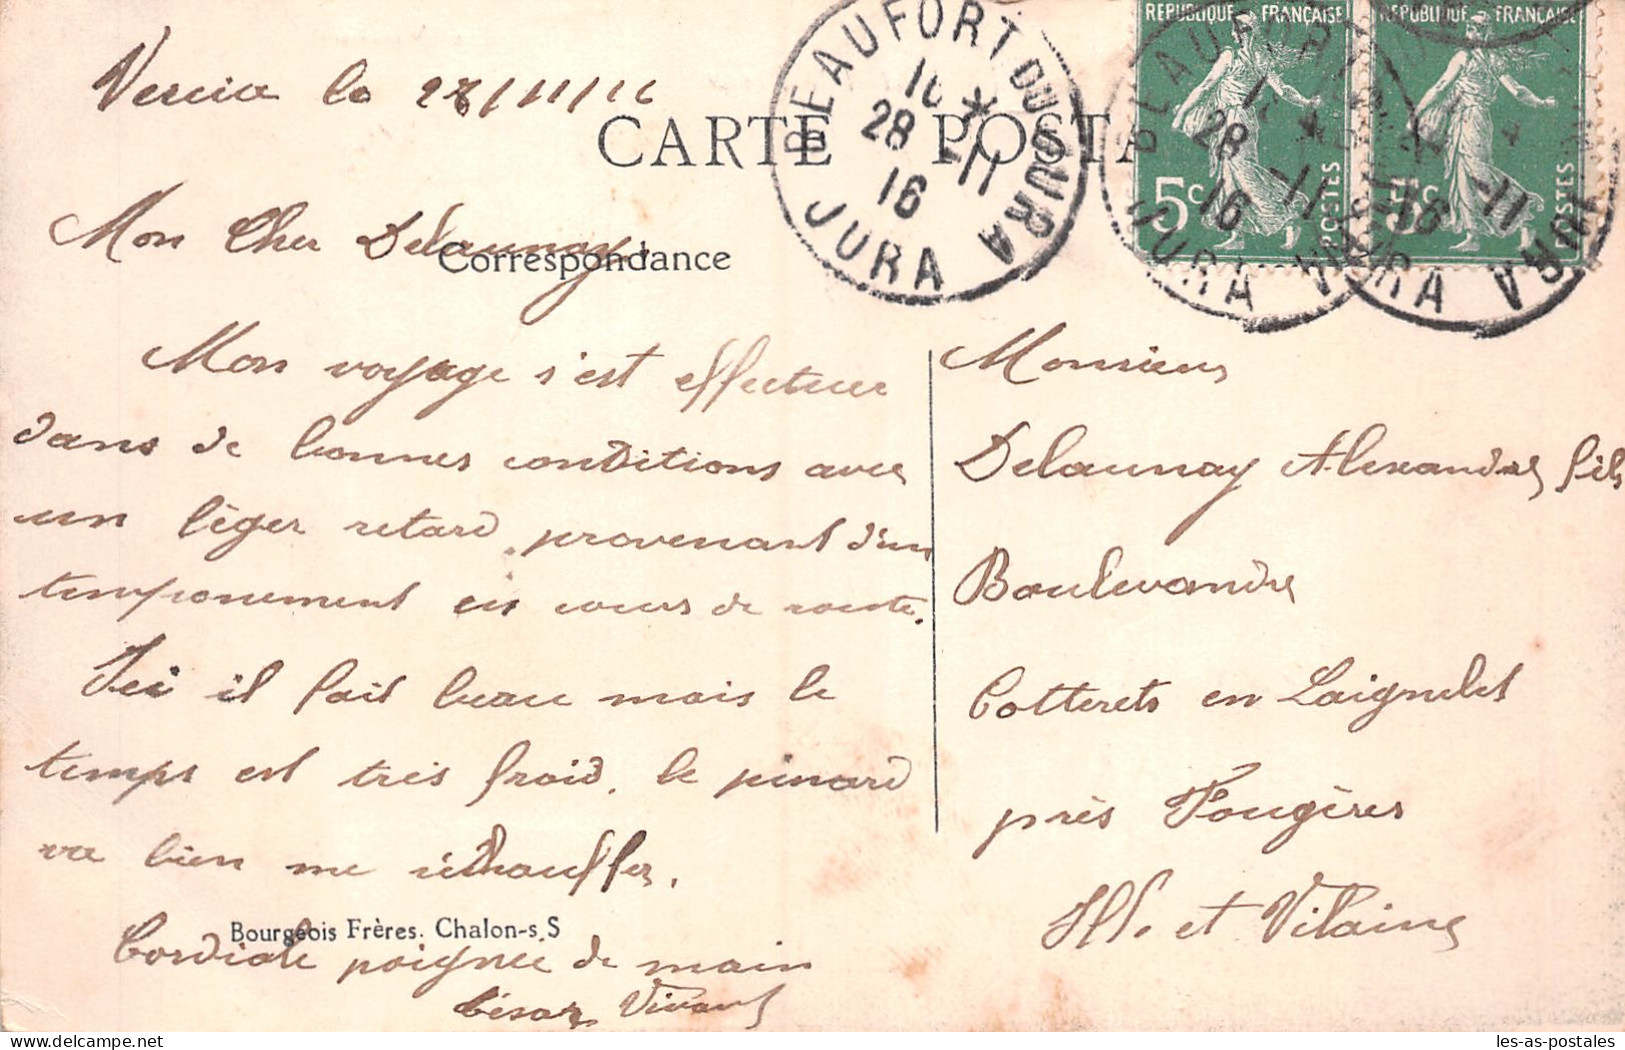 Vercia le 28/11/16
CARTE POSTA
BEAUFORT DU JURA
16 *
28 -11
16
JURA
RÉPUBLIQUE FRANÇAISE
5c
POSTES
RÉPUBLIQUE FRANÇAISE
5c
POSTES
BEAUFORT
28 -11
16
JURA
-11
16
JURA
Mon Cher Delaunay,
Correspondance
Mon voyage s'est effectuer
dans de bonnes conditions avec
un léger retard provenant d'un
tamponement en cours de route.
Ici il fait beau mais le
temps est très froid, le pinard
va bien me réchauffer.
Cordiale poignée de main
César Vivant
Bourgeois Frères. Chalon-s.S
Monsieur
Delaunay Alexandre fils
Boulevandre
Cotterets en Laignelet
près Fougères
Ille et Vilaine
les-as-postales